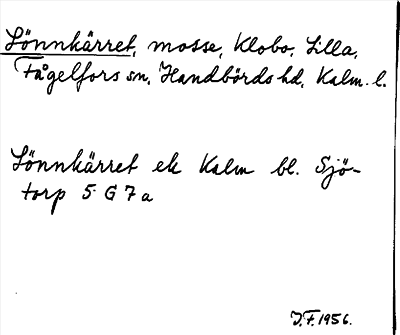 Lönnkärret, mosse, Klobo, Lilla,
Fågelfors sn, Handbörds hd, Kalm. l.
Lönnkärret ek Kalm bl. Sjö-
torp 5 G 7 a
J.F. 1956.